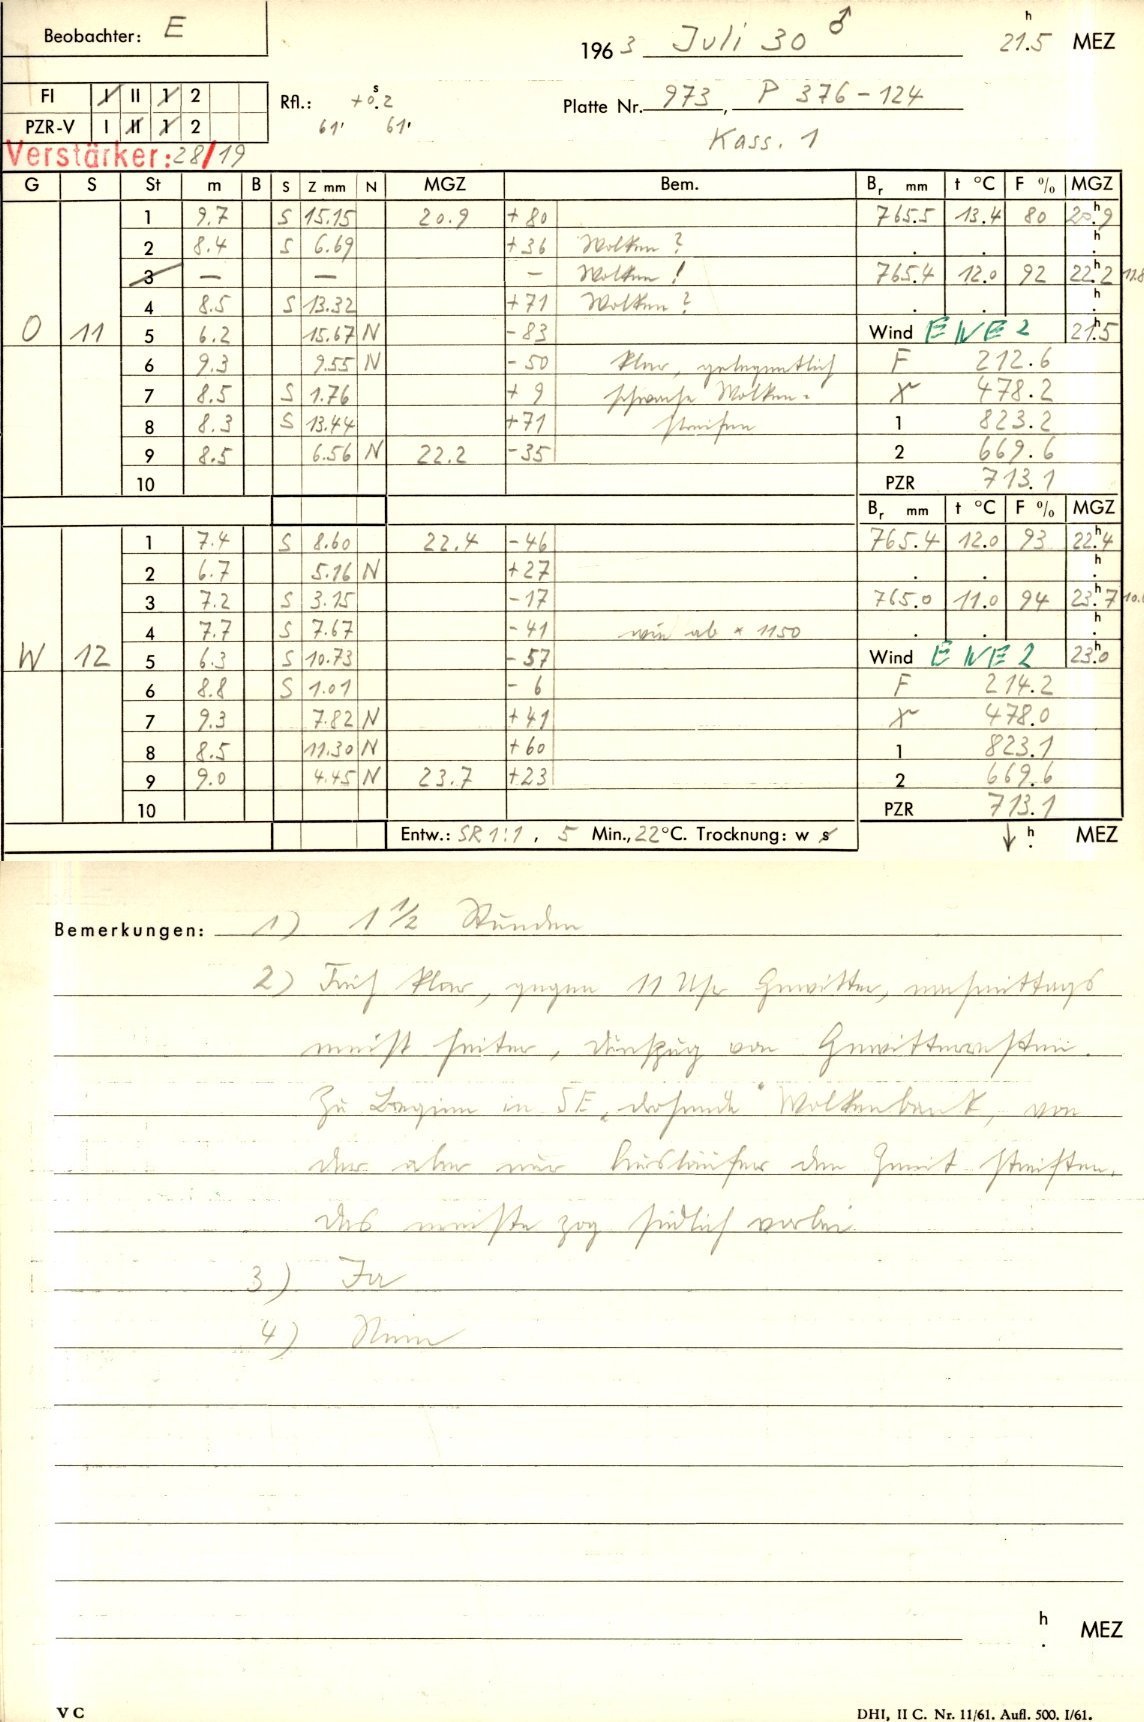 Beobachter: E
1963 Juli 30 ♂ 21.5 h MEZ
FI I II 1 2
PZR-V I II 1 2
Rfl.: +0.2 s
61' 61'
Platte Nr. 973, P 376-124
Kass. 1
Verstärker: 28/19
G S St m B S Z mm N MGZ Bem. Br mm t °C F % MGZ
1 9.7 S 15.15 20.9 +80 765.5 13.4 80 20.9 h
2 8.4 S 6.69 +36 Wolken ? . . h .
3 — — — Wolken ! 765.4 12.0 92 22.2 h
4 8.5 S 13.32 +71 Wolken ? . . h .
O 11 5 6.2 15.67 N -83 Wind E NE 2 21.5 h
6 9.3 9.55 N -50 klar, gelegentlich F 212.6
7 8.5 S 1.76 + 9 schwache Wolken- 478.2
8 8.3 S 13.44 +71 streifen 1 823.2
9 8.5 6.56 N 22.2 -35 2 669.6
10 PZR 713.1
Br mm t °C F % MGZ
1 7.4 S 8.60 22.4 -46 765.4 12.0 93 22.4 h
2 6.7 5.16 N +27 . . h .
3 7.2 S 3.15 -17 765.0 11.0 94 23.7 h
4 7.7 S 7.67 -41 wie ab * 1150 . . h .
W 12 5 6.3 S 10.73 -57 Wind E NE 2 23.0 h
6 8.8 S 1.01 - 6 F 214.2
7 9.3 7.82 N +41 478.0
8 8.5 11.30 N +60 1 823.1
9 9.0 4.45 N 23.7 +23 2 669.6
10 PZR 713.1
Entw.: SR 1:1, 5 Min., 22 °C. Trocknung: w s ↓ h . MEZ
Bemerkungen: 1) 1 1/2 Stunden
2) Früh klar, gegen 11 Uhr Gewitter, nachmittags
meist heiter, Durchzug von Gewitterresten.
Zu Beginn in SE „drohende" Wolkenbank, von
der aber nur Ausläufer den Zenit streiften,
das meiste zog südlich vorbei
3) Ja
4) Nein
h . MEZ
V C
DHI, II C. Nr. 11/61. Aufl. 500. I/61.